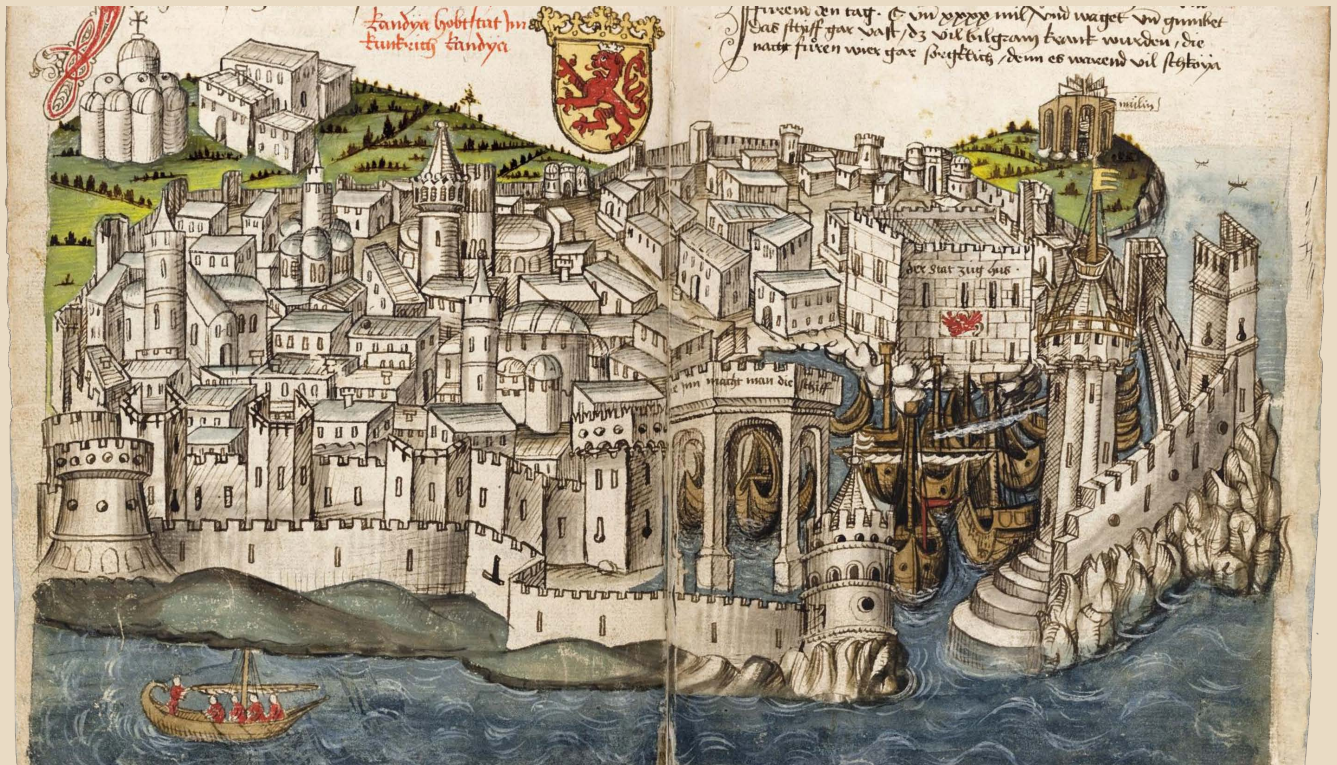 kandya hobtstat Im
kunkrich kandya
furend den tag. vnd xxxx mil / vnd waget vn gumket
das schiff gar vast / dz vil bilgram krank wurden / die
nacht furen wier gar sorgklich / denn es warend vil schkoya
der stat zug hus
inn macht man die schiff